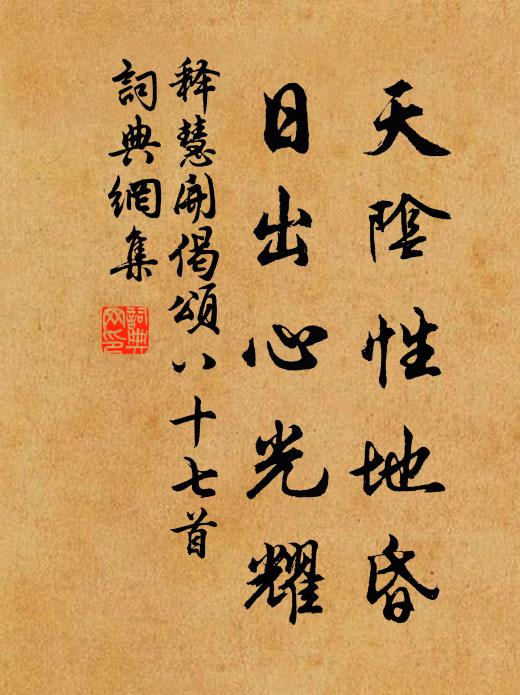 天陰性地昏
日出心光耀
释慧開偈頌八十七首
詞典網集
詞典網印